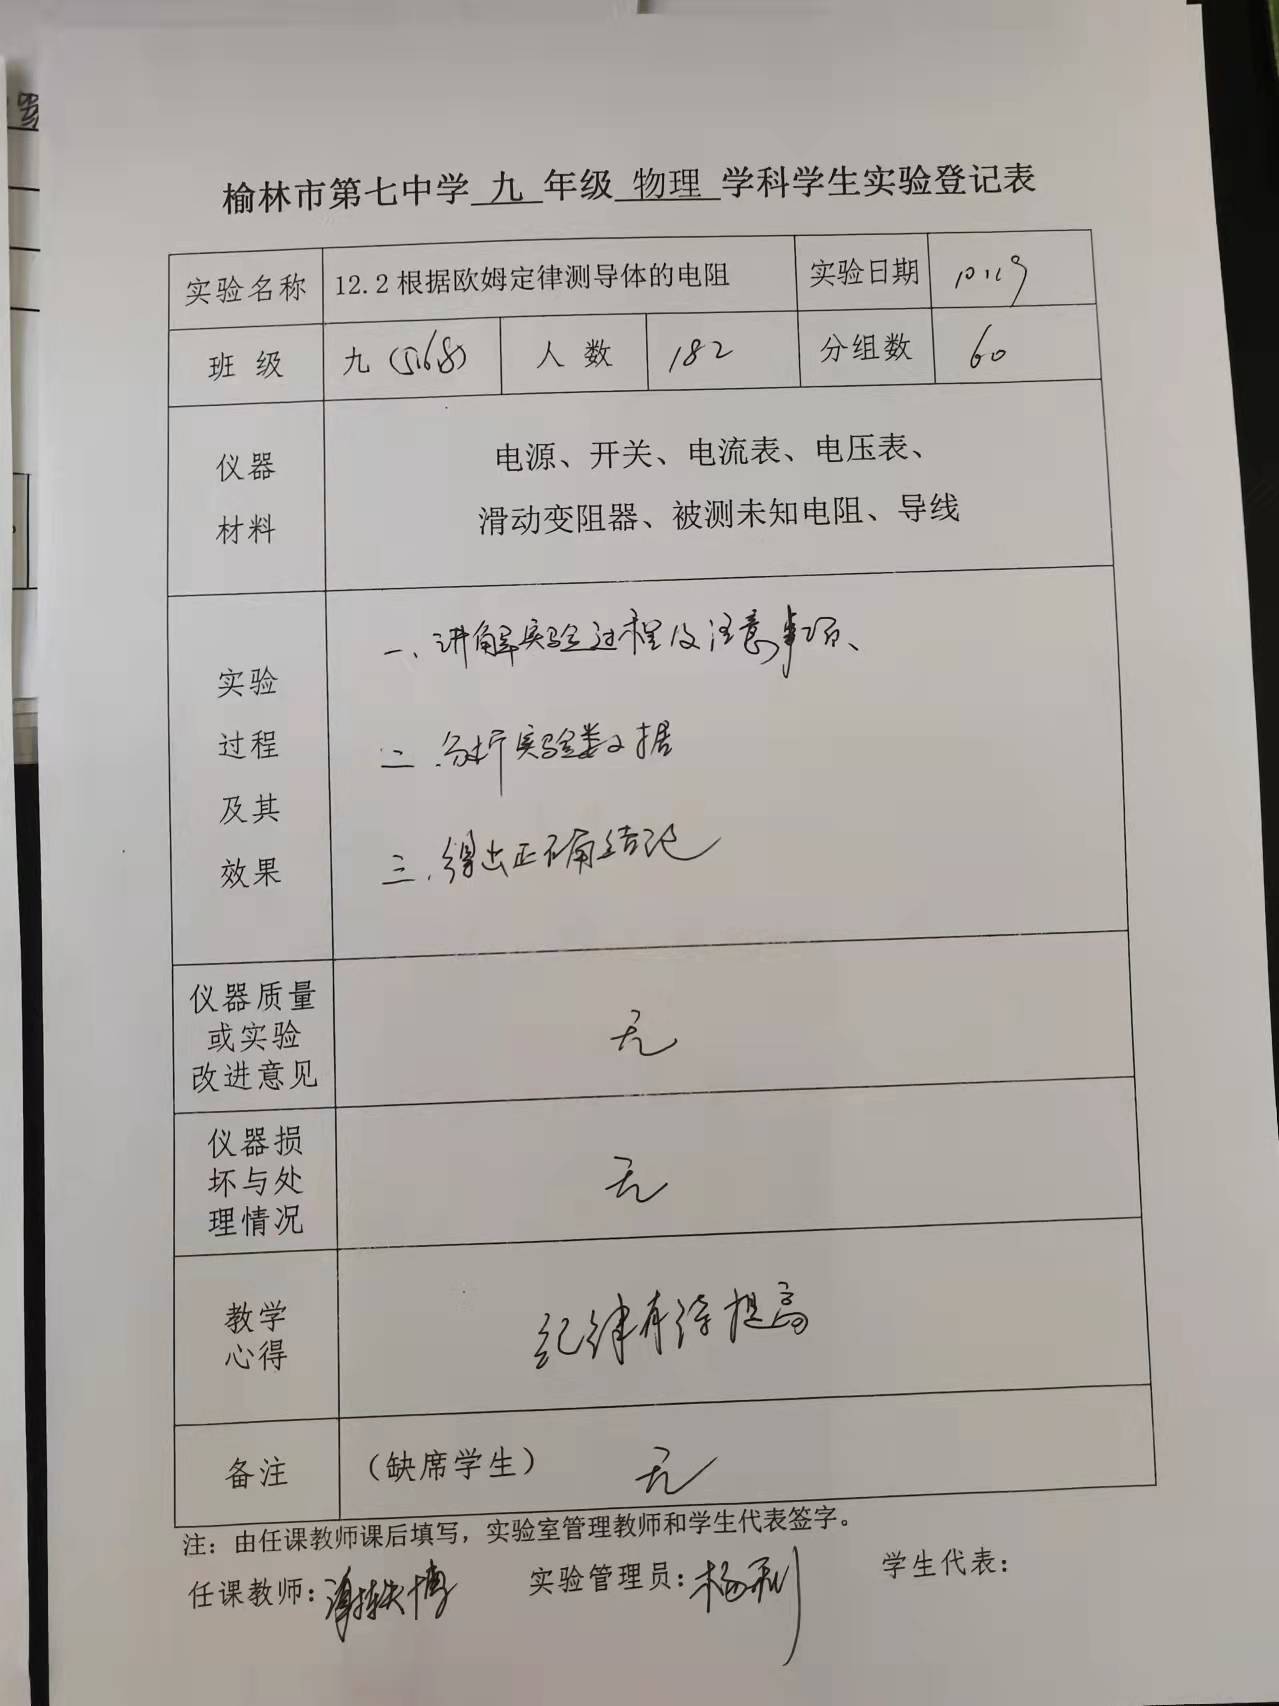 榆林市第七中学 九 年级 物理 学科学生实验登记表
实验名称 12.2根据欧姆定律测导体的电阻 实验日期
班 级 九(5168) 人 数 182 分组数 60
仪器
材料
电源、开关、电流表、电压表、
滑动变阻器、被测未知电阻、导线
实验
过程
及其
效果
一、讲解实验过程及注意事项、
二、分析实验数据
三、得出正确结论
仪器质量
或实验
改进意见
无
仪器损
坏与处
理情况
无
教学
心得
纪律有待提高
备注 (缺席学生) 无
注：由任课教师课后填写，实验室管理教师和学生代表签字。
任课教师： 实验管理员：杨利 学生代表：